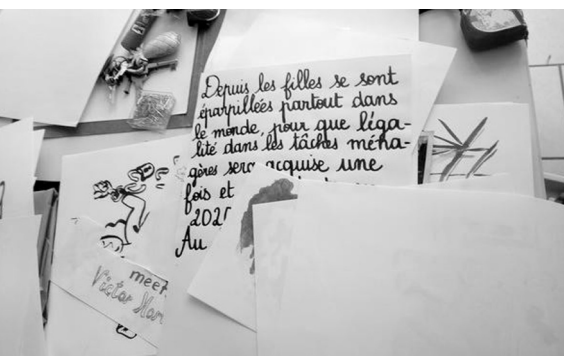 Depuis les filles se sont
éparpillées partout dans
le monde, pour que l'éga-
lité dans les tâches ména-
gères sera acquise une
fois et
Au
meet
Victor